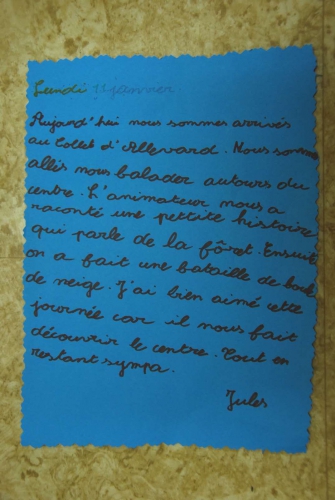 Lundi 11 janvier
Aujourd'hui nous sommes arrivés
au Collet d'Allevard. Nous sommes
allés nous balader autours du
centre. L'animateur nous a
raconté une pettite histoire
qui parle de la fôret. Ensuit
on a fait une bataille de boule
de neige. J'ai bien aimé cette
journée car il nous fait
découvrir le centre. Tout en
restant sympa.
Jules